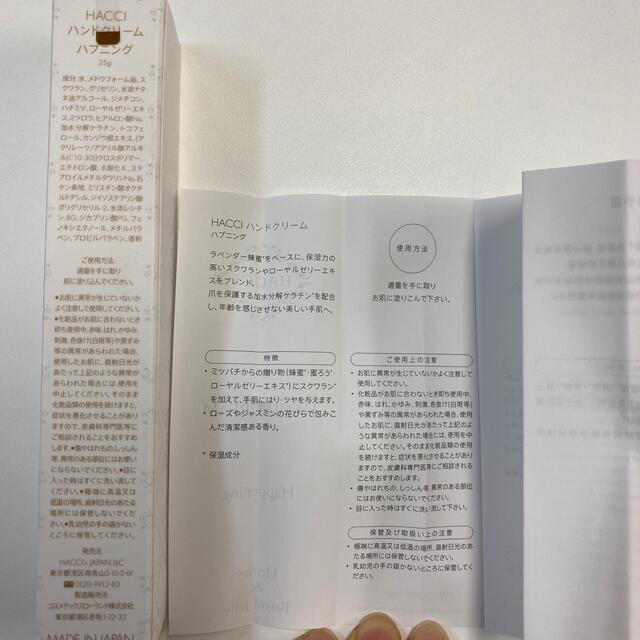 HACCI
ハンドクリーム
ハプニング
25g
成分:水、メドウフォーム油、ス
クワラン、グリセリン、水添ナタ
ネ油アルコール、ジメチコン、
ハチミツ、ローヤルゼリーエキ
ス、ミツロウ、ヒアルロン酸Na、
加水分解ケラチン、トコフェ
ロール、カンゾウ根エキス、(ア
クリレーツ/アクリル酸アルキ
ル(C10-30))クロスポリマー、
エチドロン酸、水酸化K、ステ
アロイルメチルタウリンNa、石
ケン素地、ミリスチン酸オクチ
ルドデシル、ジイソステアリン酸
ポリグリセリル-2、水添レシチ
ン、BG、ジカプリン酸PG、フェ
ノキシエタノール、メチルパラ
ベン、プロピルパラベン、香料
ご使用方法:
適量を手に取り
肌に塗りこんでください。
●お肌に異常が生じていないか
よく注意して使用してください。
●化粧品がお肌に合わないとき
即ち使用中、赤味、はれ、かゆみ、
刺激、色抜け(白斑等)や黒ずみ
等の異常があらわれた場合、
使用したお肌に、直射日光が
あたって上記のような異常が
あらわれた場合には、使用を
中止してください。そのまま
化粧品類の使用を続けますと、
症状を悪化させることがあり
ますので、皮膚科専門医等に
ご相談されることをおすすめ
します。●傷やはれもの、しっしん
等、異常のある部位にはお使い
にならないでください。●目に
入った時はすぐに洗い流して
ください。●極端に高温又は
低温の場所、直射日光のあた
る場所には保管しないでくだ
さい。●乳幼児の手の届かない
ところに保管してください。
発売元
HACCI's JAPAN.LLC
東京都港区南青山5-10-2-6F
0120-1912-83
製造販売元
コスメテックスローランド株式会社
東京都港区赤坂1-12-32
MADE IN JAPAN
HACCI ハンドクリーム
ハプニング
ラベンダー蜂蜜*をベースに、保湿力の
高いスクワランやローヤルゼリーエキ
スをブレンド。
爪を保護する加水分解ケラチン*を配合
し、年齢を感じさせない美しい手肌へ。
特徴
・ミツバチからの贈り物(蜂蜜*・蜜ろう*・
ローヤルゼリーエキス*)にスクワラン*
を加えて、手肌にハリ・ツヤを与えます。
・ローズやジャスミンの花びらで包みこ
んだ清潔感ある香り。
* 保湿成分
Happening
Honey
&
Royal Jelly
使用方法
適量を手に取り
お肌に塗りこんで下さい。
ご使用上の注意
・お肌に異常が生じていないかよく注意して
使用してください。
・化粧品がお肌に合わないとき即ち使用中、
赤味、はれ、かゆみ、刺激、色抜け(白斑等)
や黒ずみ等の異常があらわれた場合、使用
したお肌に、直射日光があたって上記のよ
うな異常があらわれた場合には、使用を中
止してください。そのまま化粧品類の使用
を続けますと、症状を悪化させることがあり
ますので、皮膚科専門医等にご相談される
ことをおすすめします。
・傷やはれもの、しっしん等、異常のある部位
にはお使いにならないでください。
・目に入った時はすぐに洗い流して下さい。
保管及び取扱い上の注意
・極端に高温又は低温の場所、直射日光のあ
たる場所には保管しないでください。
・乳幼児の手の届かないところに保管してく
ださい。